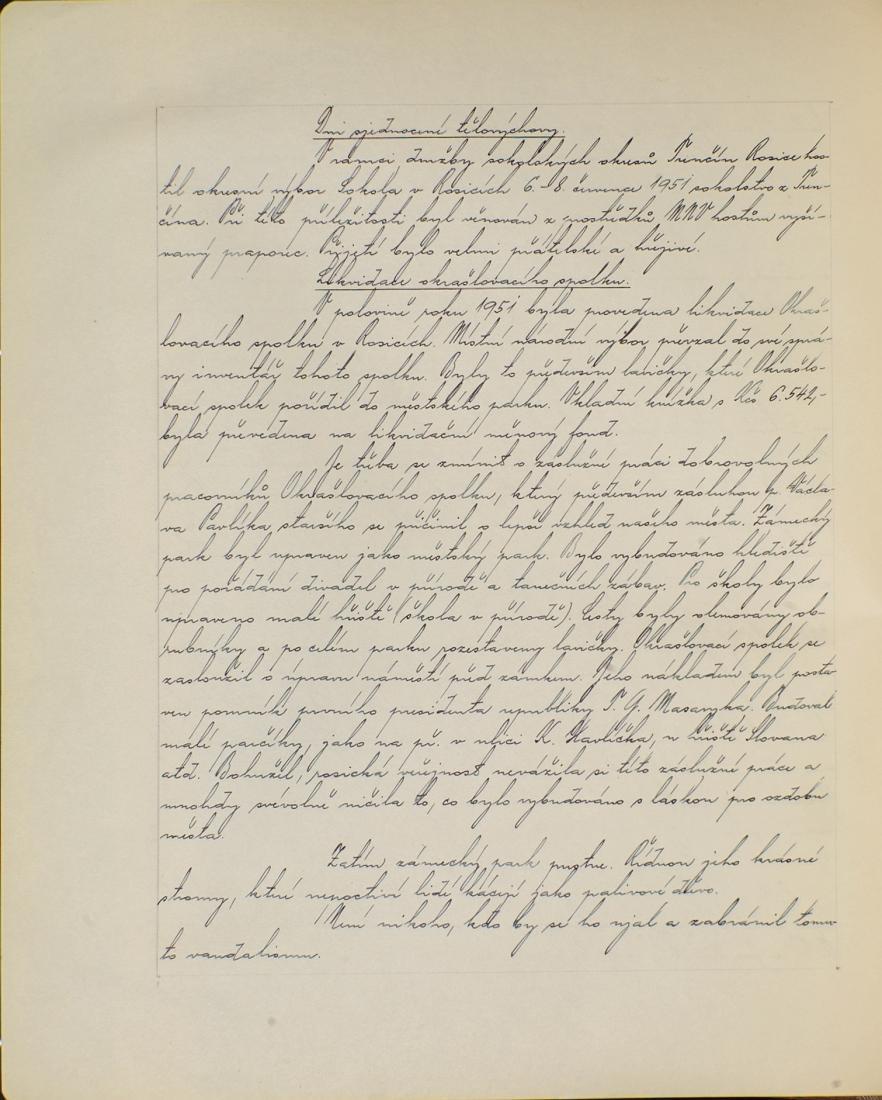 Dni sjednocení tělovýchovy.
V rámci družby sokolských okresů Trenčín Rosice hos-
til okresní výbor Sokola v Rosicích 6.-8. července 1951 sokolstvo z Tren-
čína. Při této příležitosti byl věnován z prostředků MNV hostům vyší-
vaný praporec. Přijetí bylo velmi přátelské a hřejivé.
Likvidace okrašlovacího spolku.
V polovině roku 1951 byla provedena likvidace Okraš-
lovacího spolku v Rosicích. Místní národní výbor převzal do své sprá-
vy inventář tohoto spolku. Byly to především lavičky, které Okrašlo-
vací spolek pořídil do městského parku. Vkladní knížka s Kčs 6.542,-
byla převedena na likvidační měnový fond.
Je třeba se zmínit o záslužné práci dobrovolných
pracovníků Okrašlovacího spolku, který především zásluhou p. Václa-
va Pavlíka staršího se přičinil o lepší vzhled našeho města. Zámecký
park byl upraven jako městský park. Bylo vybudováno hlediště
pro pořádání divadel v přírodě a tanečních zábav. Pro školy bylo
upraveno malé hřiště (škola v přírodě). Cesty byly olemovány ob-
rubníky a po celém parku rozestaveny lavičky. Okrašlovací spolek se
zasloužil o úpravu náměstí před zámkem. Jeho nákladem byl posta-
ven pomník prvního presidenta republiky T. G. Masaryka. Budoval
malé parčíky, jako na př. v ulici K. Havlíčka, u hřiště Slovana
atd. Bohužel, rosická veřejnost nevážila si této záslužné práce a
mnohdy svévolně ničila to, co bylo vybudováno s láskou pro ozdobu
města.
Zatím zámecký park pustne. Řídnou jeho krásné
stromy, které nepoctiví lidé kácejí jako palivové dřevo.
Není nikoho, kdo by se ho ujal a zabránil tomu-
to vandalismu.